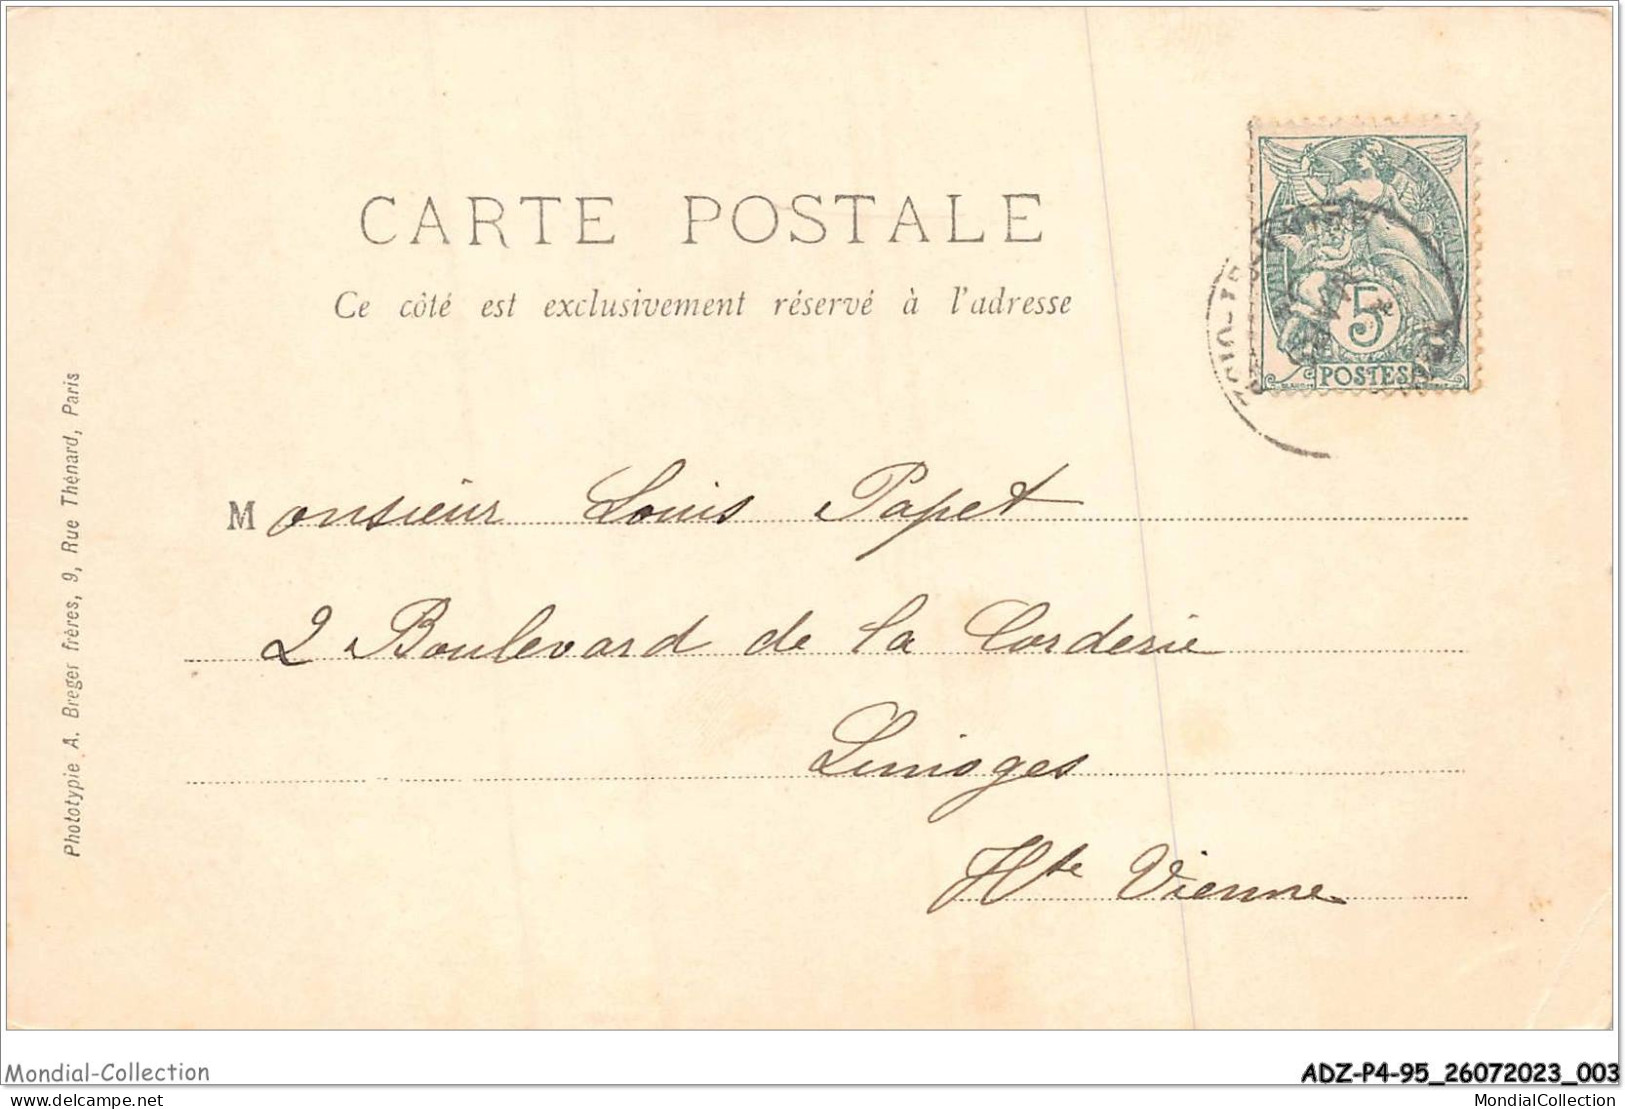 CARTE POSTALE
Ce côté est exclusivement réservé à l'adresse
5
POSTES
Monsieur Louis Papet
2 Boulevard de la Corderie
Limoges
Hte Vienne
Phototypie A. Breger frères, 9, Rue Thénard, Paris
Mondial-Collection
ADZ-P4-95_26072023_003
delcampe.net
MondialCollection